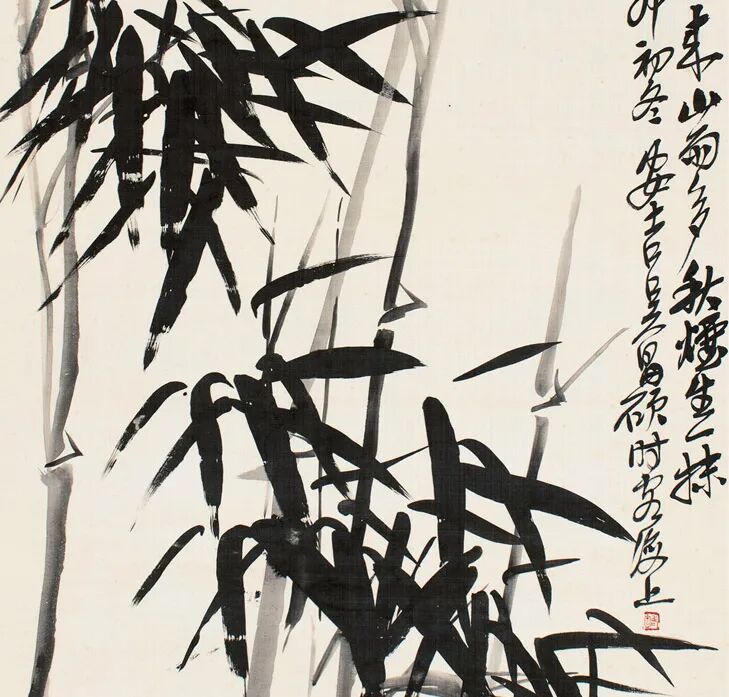 来山雨多秋煙生一抹
卯初冬安吉吴昌碩时客上